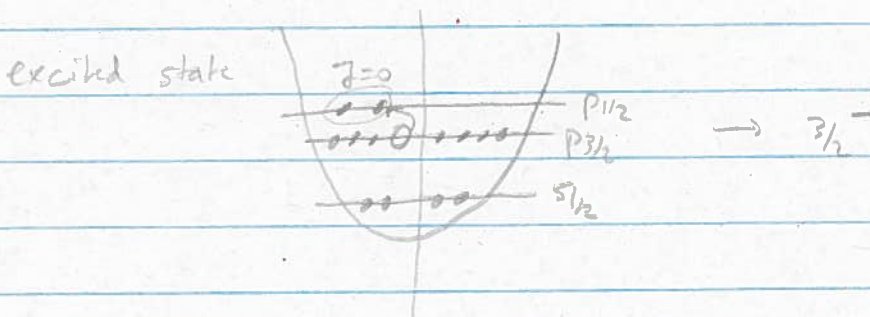 excited state
J=0
P1/2
P3/2 → 3/2⁻
S1/2